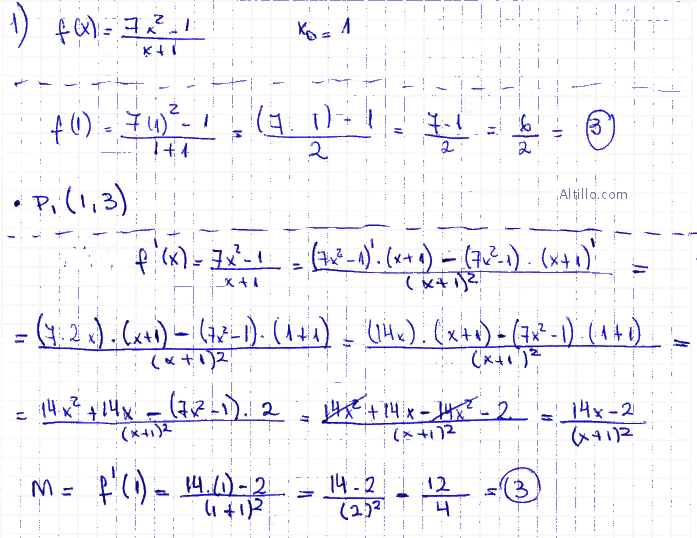 1) f(x) = (7x² - 1)/(x + 1) x₀ = 1
f(1) = (7(1)² - 1)/(1 + 1) = ((7 · 1) - 1)/2 = (7 - 1)/2 = 6/2 = 3
Altillo.com
• P₁ (1, 3)
f'(x) = (7x² - 1)/(x + 1) = ((7x² - 1)' · (x + 1) - (7x² - 1) · (x + 1)')/(x + 1)² =
= ((7 · 2x) · (x + 1) - (7x² - 1) · (1 + 1))/(x + 1)² = ((14x) · (x + 1) - (7x² - 1) · (1 + 1))/(x + 1)² =
= (14x² + 14x - (7x² - 1) · 2)/(x + 1)² = (14x² + 14x - 14x² - 2)/(x + 1)² = (14x - 2)/(x + 1)²
M = f'(1) = (14 · (1) - 2)/(1 + 1)² = (14 - 2)/(2)² - 12/4 = 3